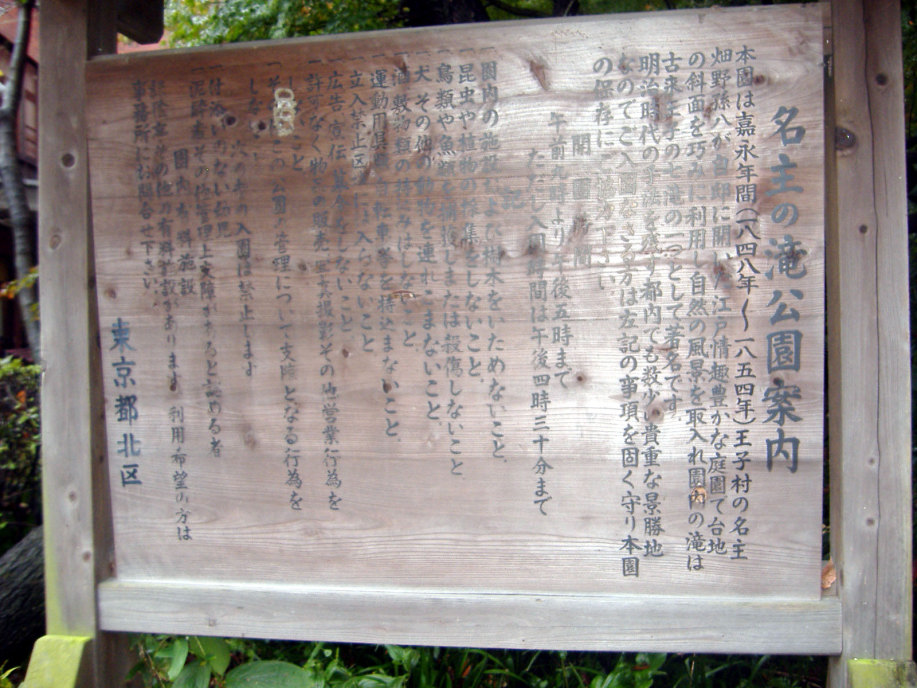 名主の滝公園案内
本園は嘉永年間(一八四八年〜一八五四年)王子村の名主
畑野孫八が自邸に開いた江戸情趣豊かな庭園で台地
の斜面を巧みに利用し自然の風景を取入れ園内の滝は
古来王子七滝の一つとして著名です
明治時代の景況を残す都内でも数少い貴重な景勝地
なのでご入園なさる方は左記の事項を固く守り本園
の保存にご協力下さい
記
開園時間
午前九時より午後五時まで
ただし入園時間は午後四時三十分まで
一園内の施設および樹木をいためないこと
一昆虫や植物の採集をしないこと
一鳥類や魚類を捕獲しまたは殺傷しないこと
一犬その他の動物を連れこまないこと
一立入禁止区域に入らないこと
一広告宣伝 をしないこと
一許可なく物品の販売 撮影その他営業行為を
しないこと
その他この公園の管理について支障となる行為を
しないこと
の入園は禁止します
泥酔者その他管理上支障があると認める者
園内有料施設
の有料施設があります 利用希望の方は
事務所にお問合せ下さい
東京都北区